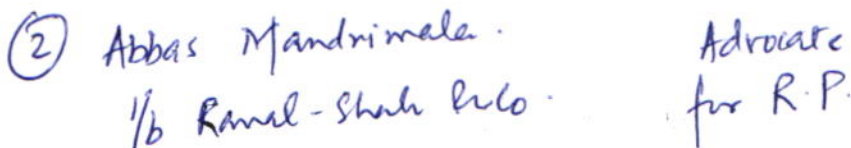 ② Abbas Mandrimala. Advocate
i/b Raval-Shah & Co. for R.P.